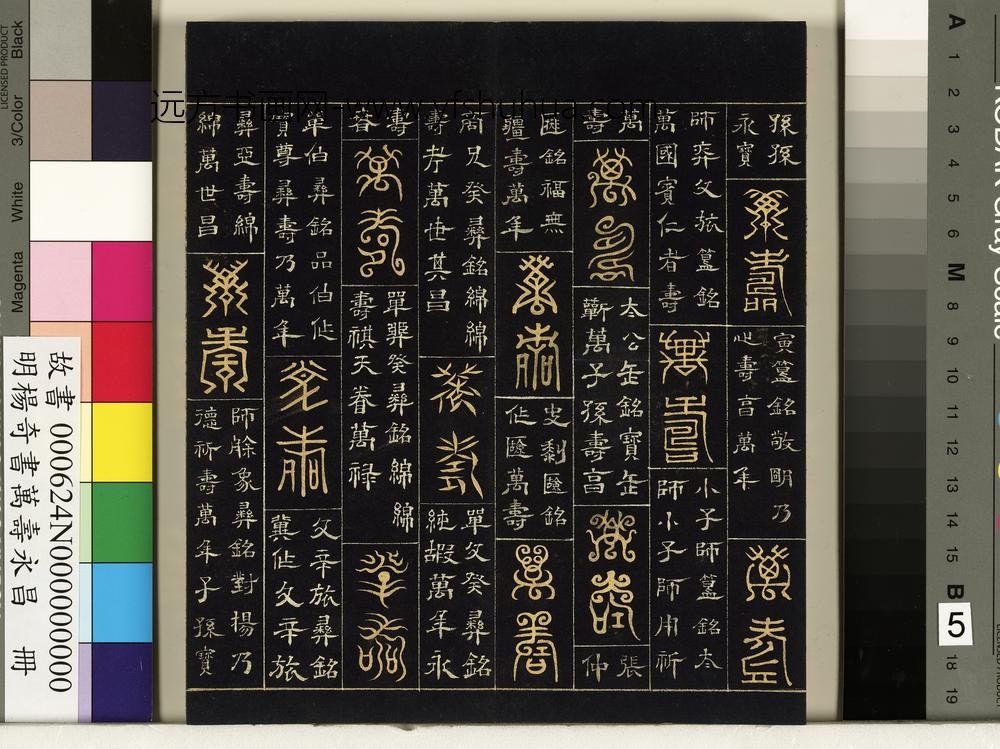 孫孫
永寶
萬壽
寅簋銘敬明乃
心壽亯萬年
萬壽
師父旅簋銘
萬國賓仁者壽
萬壽
小子師簋銘太
師小子師用祈
萬
壽
萬壽
太公缶銘寶缶
蘄萬子孫壽亯
萬壽
張
仲
匜銘福無
疆壽萬年
萬壽
史剩匜銘
作匜萬壽
萬壽
商兄癸彝銘綿綿
壽考萬世其昌
萬壽
單父癸彝銘
純嘏萬年永
壽
萬壽
單癸彝銘綿綿
壽祺天眷萬祿
萬壽
單伯彝銘品伯作
寶尊彝壽乃萬年
萬壽
父辛旅彝銘
冀作父辛旅
彝亞壽綿
綿萬世昌
萬壽
師象彝銘對揚乃
德祈壽萬年子孫寶
远方书画网-www.yfshuhua.com
故書 000624N000000000
明楊奇書萬壽永昌 冊
LICENSED PRODUCT
Black
3/Color
White
Magenta
A
1
2
3
4
5
6
M
8
9
10
11
12
13
14
15
B
5
18
19